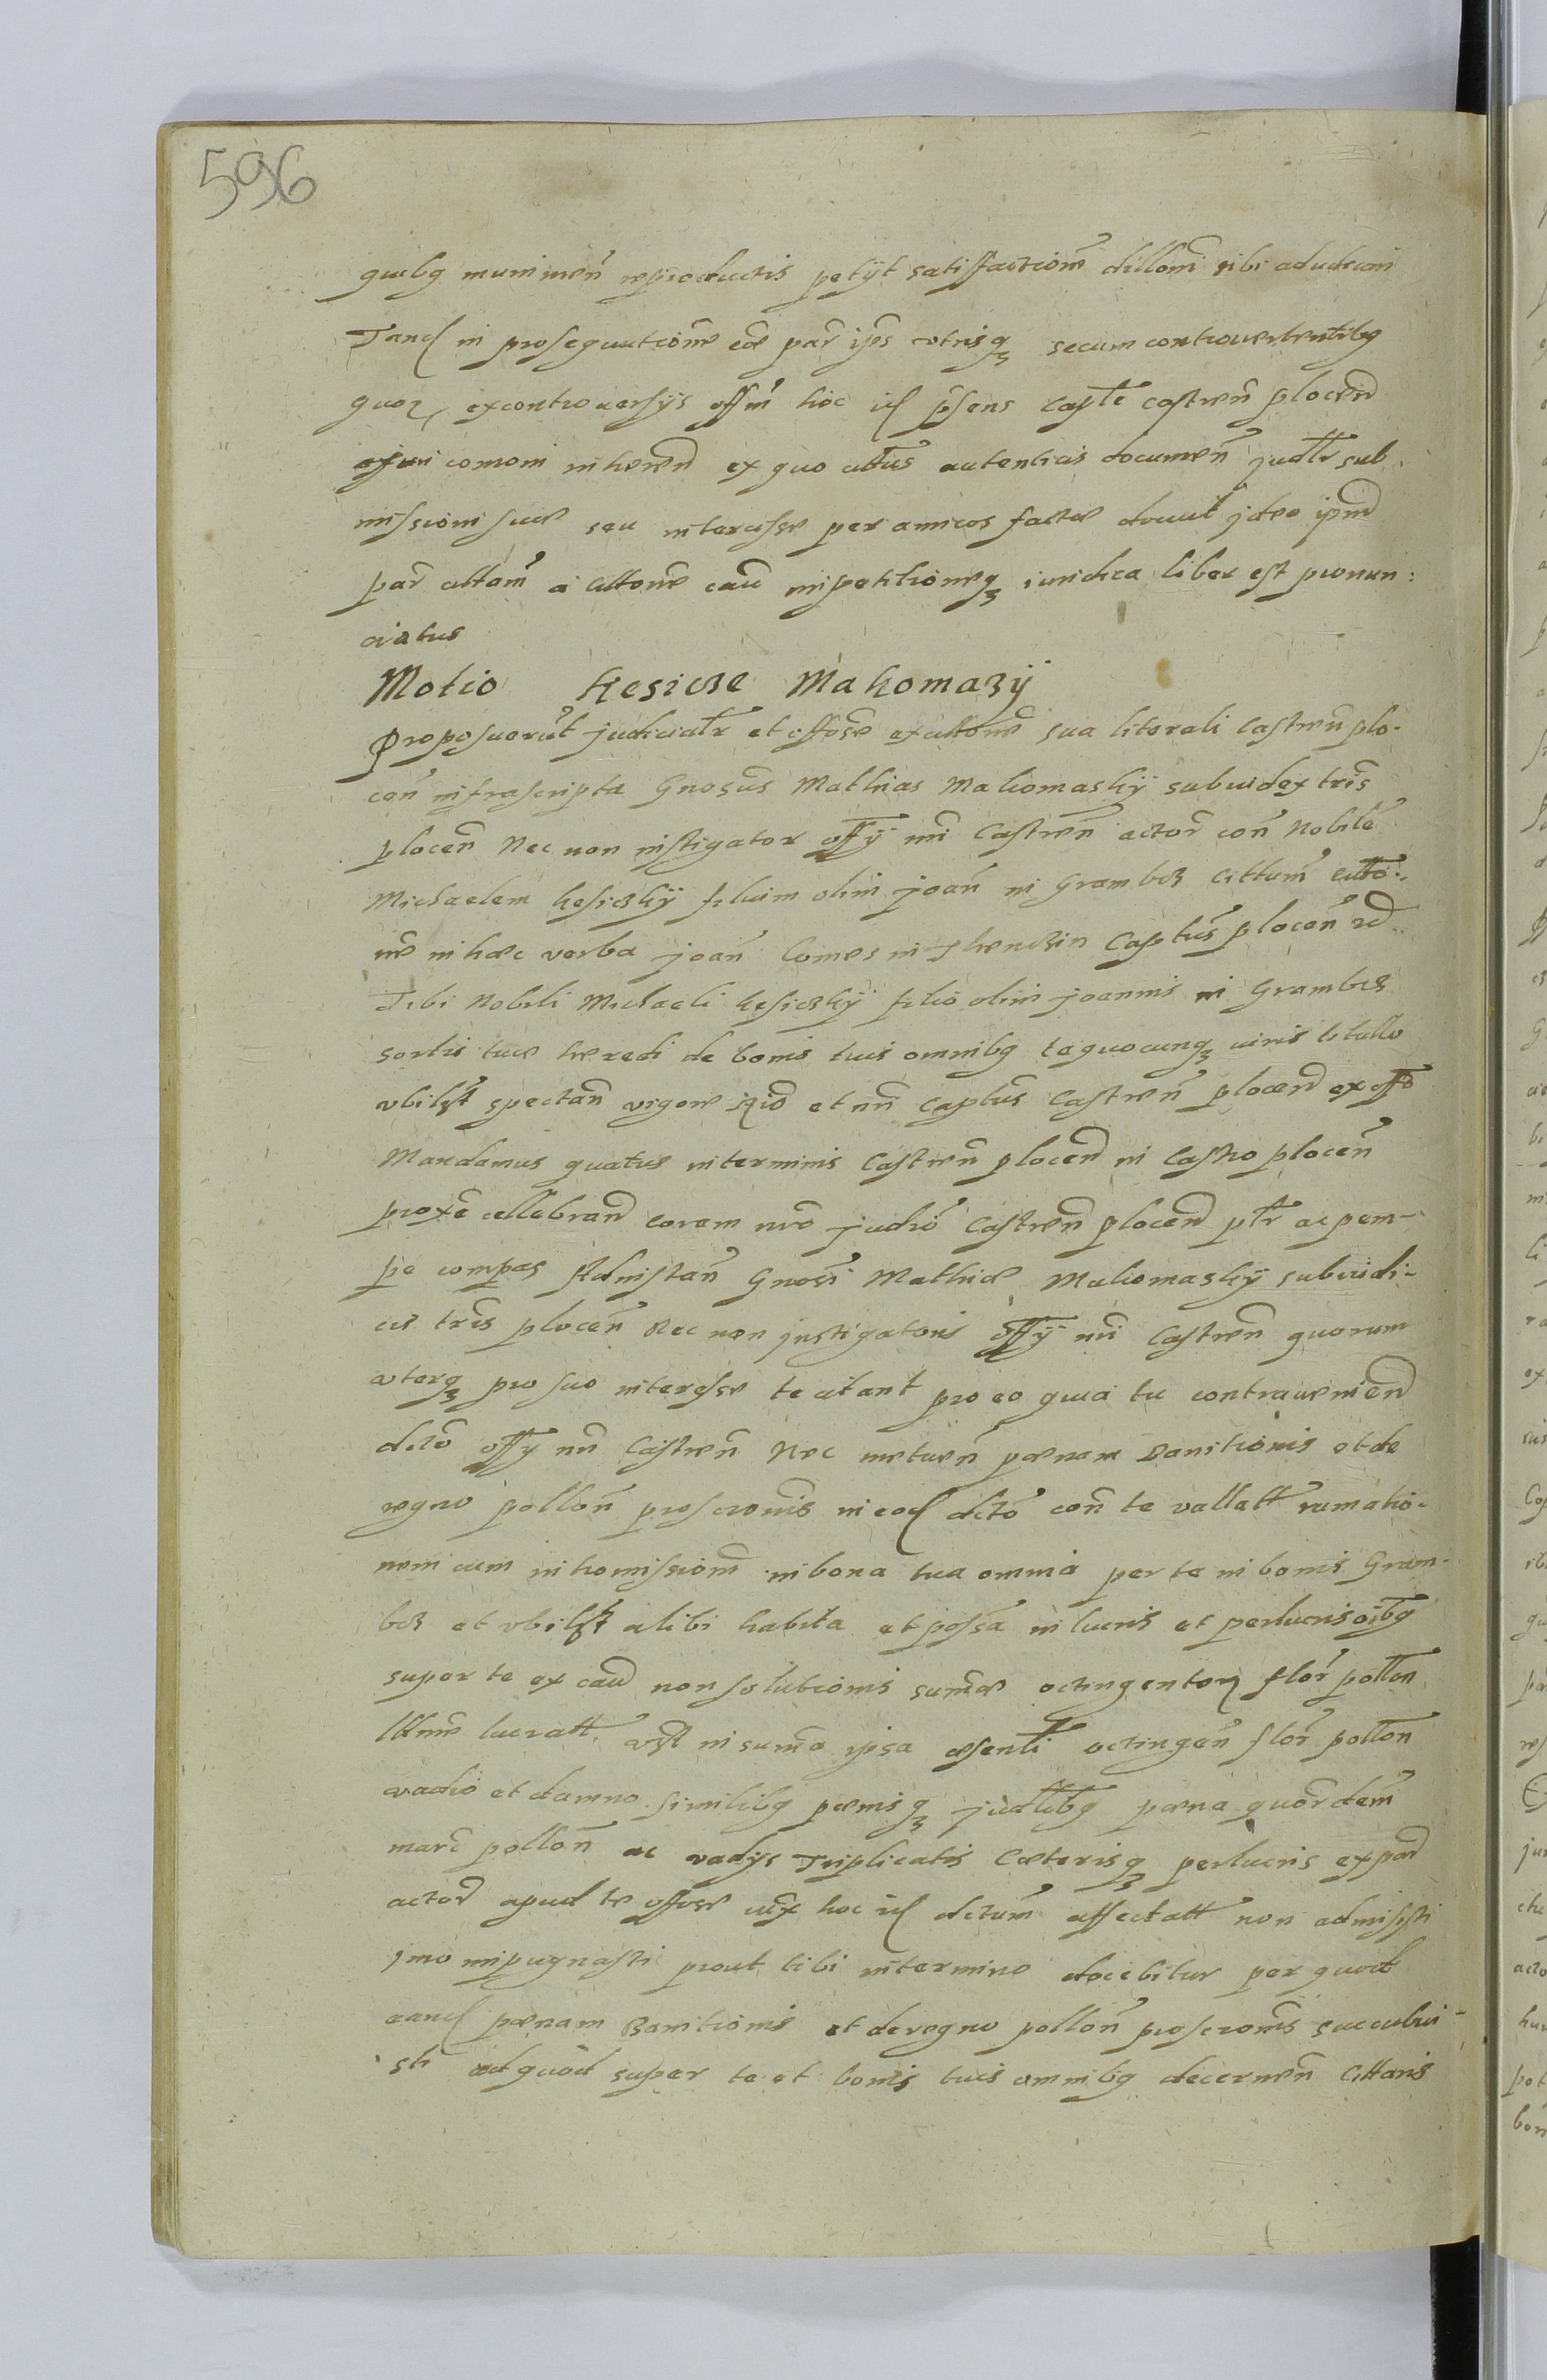 596
quibq munimen reproductis petÿt satisfactione sibi adudicari
Tand in prosequutione eæ par ips utrisq secum controuertentibq
quoz, ex controuersÿs offm hoc id psens Capte castren plocen
iuri comoni inheren ex quo autenticis documen judtr sub
missioni suæ seu interesse per amicos factæ docuit jdeo ipm
par a cittone impetitioneq iuridica liber est pronun:
ciatus
Motio Kesicze Makomazÿ
Proposuerut judiciatr et offose sua literali Castren plo-
cen infrascripta Gnosus Mathias Makomaskÿ subiudex tris
plocen Nec non instigator offÿ nri Castren actor con Nobile
Michaelem Kesiczkÿ filium olim joan in Grambcz
ne in hæc verba joan Comes in Captus plocen
Tibi Nobili Michaeli Kesiczkÿ filio olim joannis in Grambcz
sortis tuæ hæredi de bonis tuis omnibq tequocunq iuris titullo
vbilst spectan vigore et nri Captus Castren plocen ex offo
Mandamus quatus in terminis Castren plocen in Castro plocen
proxe cellebran coram nro judio Castren plocen ptr ac pem-
pe compas Ad instan Gnosi Mathiæ Makomaskÿ subiudi-
cis tris plocen Nec non jnstigatoris offÿ nri Castren quorum
vterq pro suo interesse te citant pro eo quia tu contraueniend
dcto offÿ nri Castren Nec metuen pænam Banitionis et de
regno pollon proscronis in eod dcto con te vallatt rumatio-
nem cum intromissione in bona tua omnia per te in bonis Gram-
bcz et vbilst alibi habita et possa in lucris et perlucris oibq
super te ex cau non solutionis sumæ octingentoz flor pollon
lucratt, vst in suma ipsa octingen flor pollon
vadio et damno similibq pænisq judtibq pæna quordem
marc pollon ac vadÿs Triplicatis Cæterisq perlucris ex par
actor apud te offose hoc id dctum affectatt non admisisti
jmo impugnasti prout tibi in termino docebitur per quod
eand pænam Banitionis et de regno pollon proscronis succubui-
sti adquod super te et bonis tuis omnibq decernen Cittaris